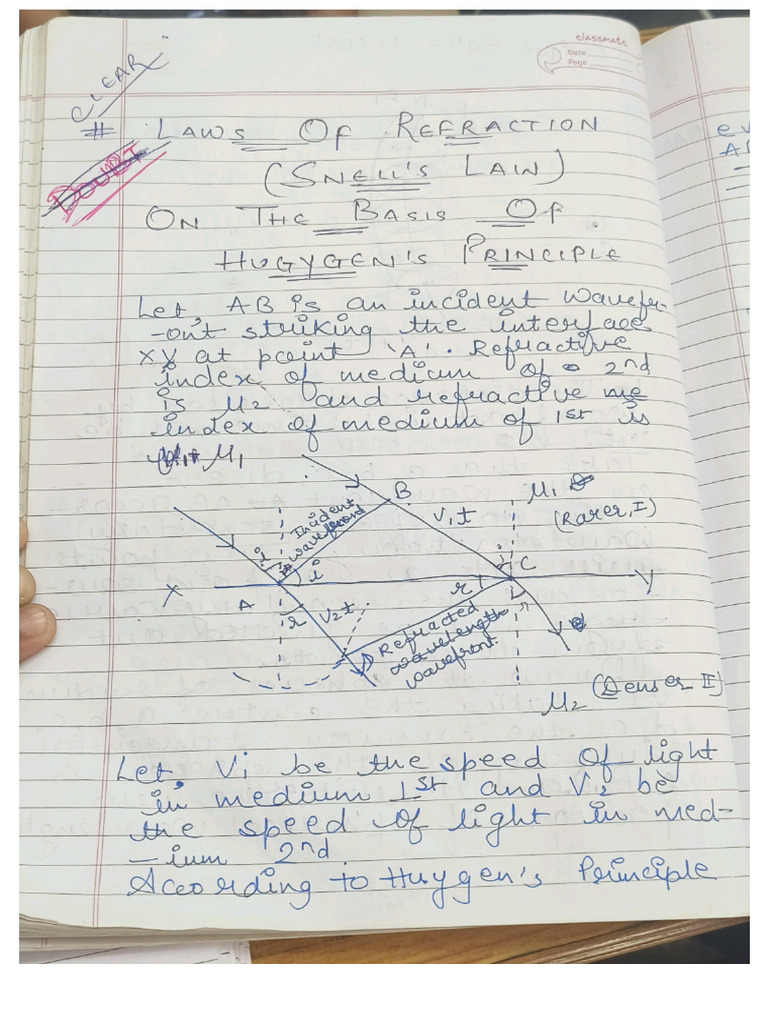 classmate
Date
Page
CLEAR
# LAWS OF REFRACTION
DOUBT
(SNELL'S LAW)
ON THE BASIS OF
HUGYGEN'S PRINCIPLE
Let, AB is an incident wavefr-
-ont striking the interface
XY at point 'A'. Refractive
index of medium of 2nd
is μ2 and refractive me
index of medium of 1st is
μ1
B
μ1
(Rarer, I)
Incident
wavefront
V1t
i
i
i
X
A
C
Y
r
r
V2t
r
Refracted
wavelength
wavefront.
D
μ2 (Denser II)
Let, V1 be the speed of light
in medium 1st and V2 be
the speed of light in med-
-ium 2nd.
According to Huygen's Principle